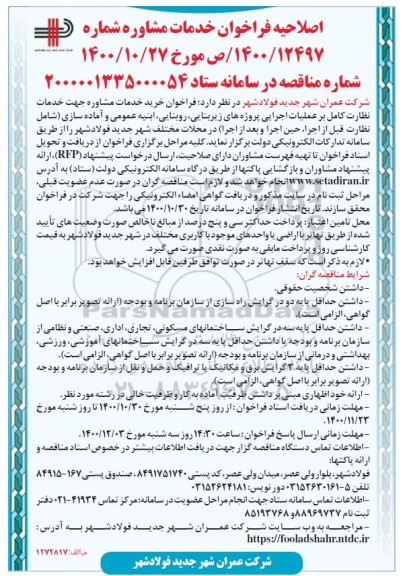 اصلاحیه فراخوان خدمات مشاوره شماره
۱۴۰۰/۱۲۴۹۷/ص مورخ ۱۴۰۰/۱۰/۲۷
شماره مناقصه در سامانه ستاد ۲۰۰۰۰۰۱۳۳۵۰۰۰۰۵۴
شرکت عمران شهر جدید فولادشهر در نظر دارد: فراخوان خرید خدمات مشاوره جهت خدمات
نظارت کامل بر عملیات اجرایی پروژه های زیربنایی، روبنایی، ابنیه عمومی و آماده سازی (شامل
نظارت قبل از اجرا، حین اجرا و بعد از اجرا) در محلات مختلف شهر جدید فولادشهر را از طریق
سامانه تدارکات الکترونیکی دولت برگزار نماید. کلیه مراحل برگزاری فراخوان از دریافت و تحویل
اسناد فراخوان تا تهیه فهرست مشاوران دارای صلاحیت، ارسال درخواست پیشنهاد (RFP)، ارائه
پیشنهاد مشاوران و بازگشایی پاکتها از طریق درگاه سامانه الکترونیکی دولت (ستاد) به آدرس
www.setadiran.ir انجام خواهد شد و لازم است مناقصه گران در صورت عدم عضویت قبلی،
مراحل ثبت نام در سایت مذکور و دریافت گواهی امضاء الکترونیکی را جهت شرکت در فراخوان
محقق سازند. تاریخ انتشار فراخوان در سامانه تاریخ ۱۴۰۰/۱۰/۳۰ می باشد.
محل تامین اعتبار: پرداخت حداکثر سی و پنج درصد از مبالغ ناخالص صورت وضعیت های تأیید
شده از طریق تهاتر با اراضی یا واحدهای موجود با کاربری مختلف در شهر جدید فولادشهر به قیمت
کارشناسی روز و پرداخت مابقی به صورت نقدی صورت می گیرد.
*لازم به ذکر است که سقف تهاتر در صورت توافق طرفین قابل افزایش خواهد بود.
شرایط مناقصه گران:
- داشتن شخصیت حقوقی.
- داشتن حداقل پایه دو در گرایش راه سازی از سازمان برنامه و بودجه (ارائه تصویر برابر با اصل
گواهی، الزامی است).
- داشتن حداقل پایه سه در گرایش ساختمانهای مسکونی، تجاری، اداری، صنعتی و نظامی از
سازمان برنامه و بودجه یا داشتن حداقل پایه سه در گرایش ساختمانهای آموزشی، ورزشی،
بهداشتی و درمانی از سازمان برنامه و بودجه (ارائه تصویر برابر با اصل گواهی، الزامی است).
- داشتن حداقل پایه ۳ گرایش برق و مکانیک یا ترافیک و حمل و نقل از سازمان برنامه و بودجه
(ارائه تصویر برابر با اصل گواهی، الزامی است).
- ارائه خود اظهاری مبنی بر داشتن ظرفیت آماده به کار و ظرفیت خالی در رشته مورد نظر.
- مهلت زمانی دریافت اسناد فراخوان: از روز پنج شنبه مورخ ۱۴۰۰/۱۰/۳۰ تا روز شنبه مورخ
۱۴۰۰/۱۱/۲۳.
- مهلت زمانی ارسال پاسخ فراخوان: ساعت ۱۴:۳۰ روز سه شنبه مورخ ۱۴۰۰/۱۲/۰۳.
- اطلاعات تماس دستگاه مناقصه گزار جهت دریافت اطلاعات بیشتر در خصوص اسناد مناقصه و
ارائه پاکتها:
فولادشهر، بلوار ولی عصر، میدان ولی عصر، کد پستی ۸۴۹۱۷۵۱۷۴۰، صندوق پستی ۱۶۷-۸۴۹۱۵
تلفن ۵-۰۳۱۵۲۶۳۰۱۶۱ دورنویس: ۰۳۱۵۲۶۲۴۱۸۱
- اطلاعات تماس سامانه ستاد جهت انجام مراحل عضویت در سامانه: مرکز تماس ۴۱۹۳۴-۰۲۱ دفتر
ثبت نام ۸۸۹۶۹۷۳۷ و ۸۵۱۹۳۷۶۸
- مراجعه به وب سایت شرکت عمران شهر جدید فولادشهر به آدرس:
https://fooladshahr.ntdc.ir
م الف: ۱۲۷۲۸۱۷
شرکت عمران شهر جدید فولادشهر